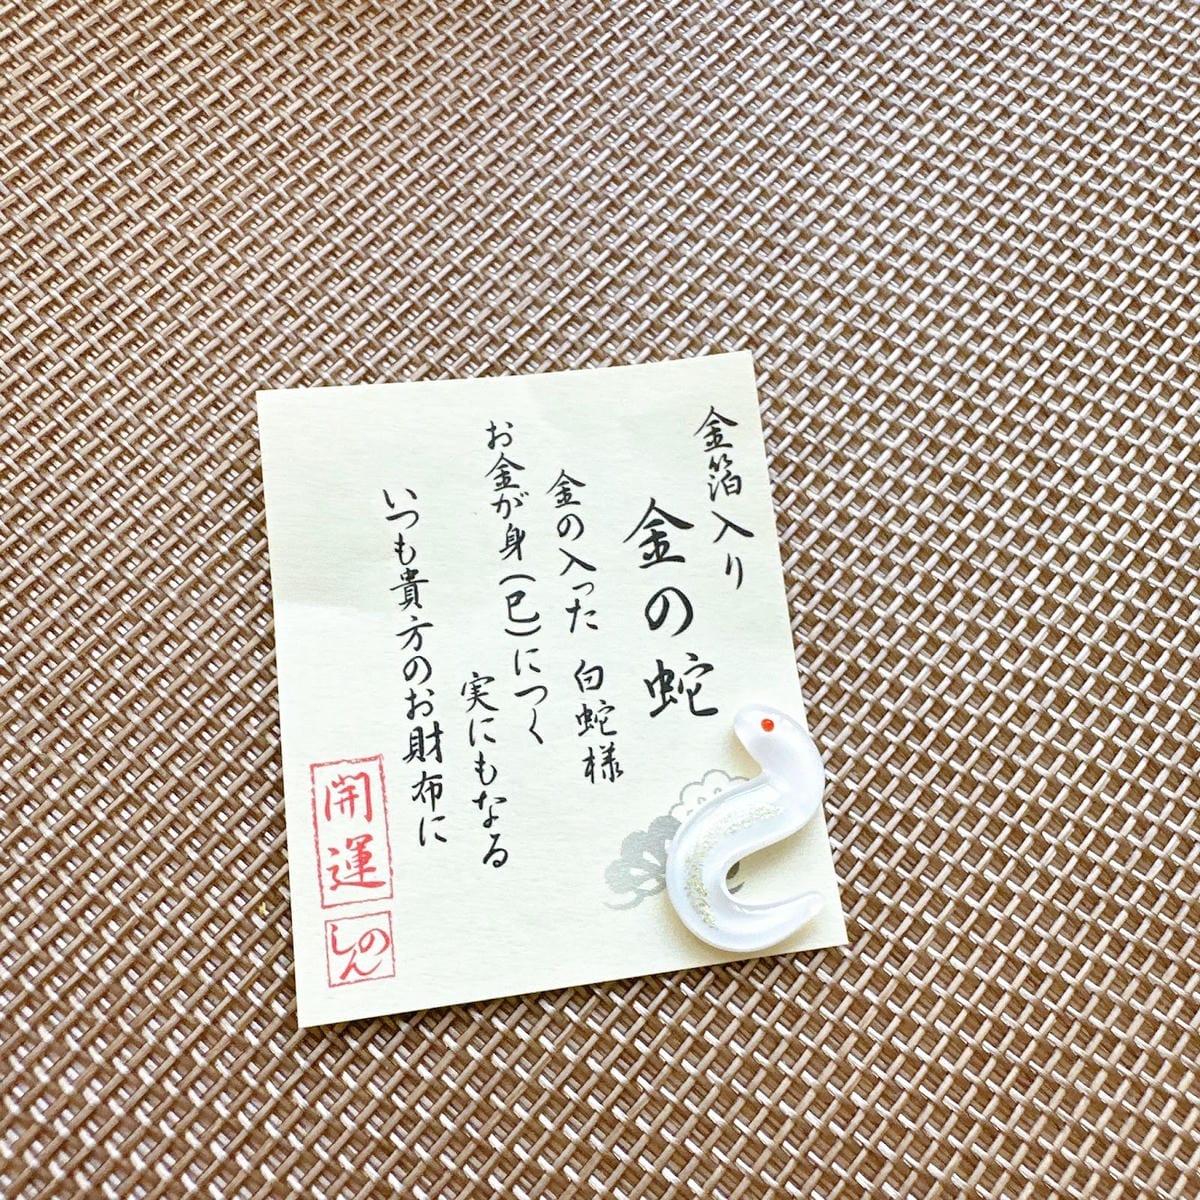 金箔入り
金の蛇
金の入った 白蛇様
お金が身(巳)につく
実にもなる
いつも貴方のお財布に
開運
のん
し